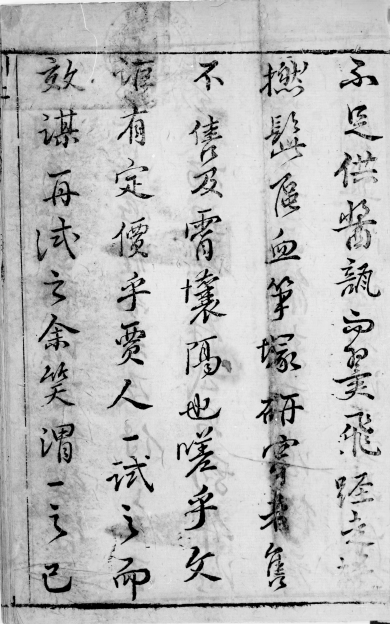 不足供醬瓿而翼飛脛走
撚髭嘔血筆塚研穿其售
不售及霄壤隔也嗟乎文
詎有定價乎賈人一試之而
效謀再試之余笑謂一之已